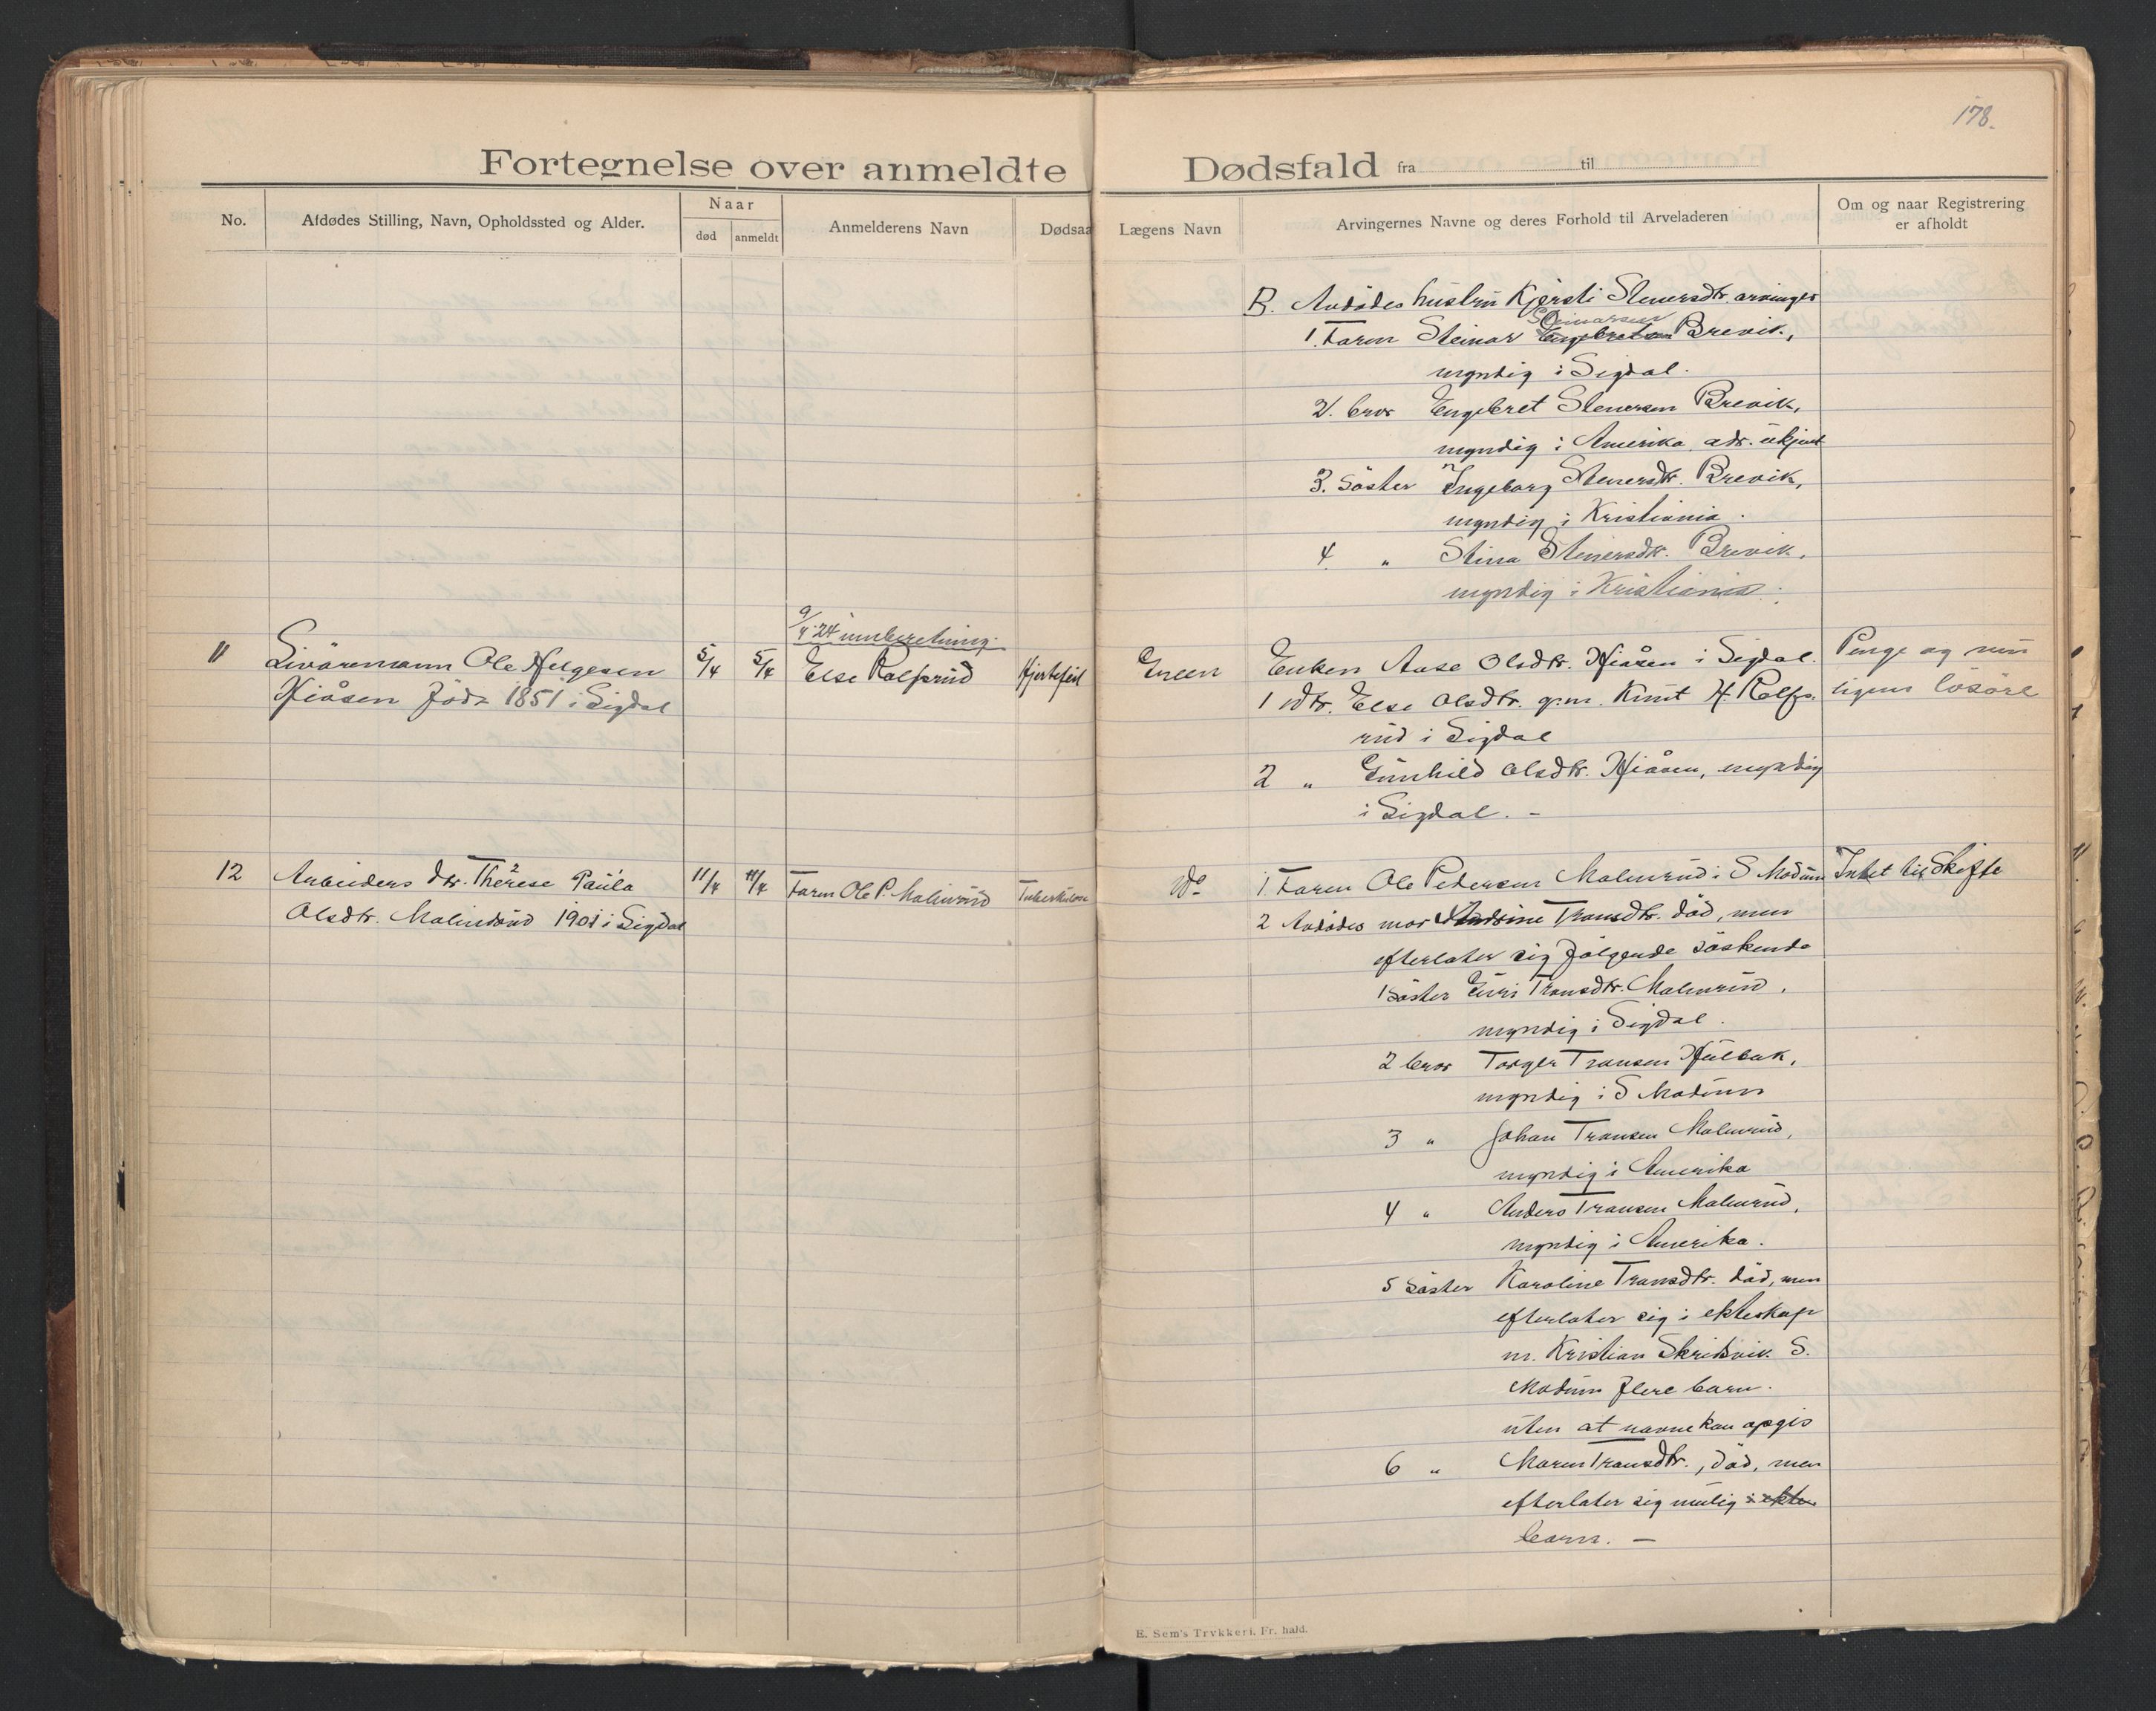 178.
Fortegnelse over anmeldte Dødsfald fra til
No.
Afdødes Stilling, Navn, Opholdssted og Alder.
Naar
død
anmeldt
Anmelderens Navn
Dødsaa
Lægens Navn
Arvingernes Navne og deres Forhold til Arveladeren
Om og naar Registrering
er afholdt
B. Avdödes hustru Kjersti Stenersdtr. arvinger
Steinarsen
1. Faren Steinar Engebretsen Brevik,
myndig i Sigdal.
2. bror Engebret Stenersen Brevik,
myndig i Amerika adr. ukjent
3. Söster Ingeborg Stenersdtr. Brevik,
myndig i Kristiania.
4. " Stina Stenersdtr. Brevik,
myndig i Kristiania.
9/4 24 innberetning.
11 Livöremann Ole Helgesen 5/4 5/4 Else Kolsrud Hjertefeil
Hiåsen född 1851 i Sigdal
Ingen Enken Aase Olsdtr. Hiåsen i Sigdal. Penge og
1 dtr. Else Olsdtr. g.m. Knut H. Kolfs- lösöre
rud i Sigdal
2 " Gunhild Olsdtr. Hiåsen, myndig
i Sigdal. -
12 Arbeiders dtr. Therese Paula 11/4 11/4 Faren Ole P. Malmrud Tuberkulose
Olsdtr. Malmrud 1901 i Sigdal
do 1 Faren Ole Pedersen Malmrud i S Modum Intet til Skifte
2 Avdödes mor Andrine Transdtr. död, men
efterlater sig fölgende söskende
1 söster Guri Transdtr. Malmrud,
myndig i Sigdal.
2 bror Torger Transen Hulbak,
myndig i S Modum
3 " Johan Transen Malmrud,
myndig i Amerika
4 " Anders Transen Malmrud,
myndig i Amerika.
5 söster Karoline Transdtr. död, men
efterlater sig i ekteskap
m. Kristian Skretsvik S.
Modum flere barn.
uten at navne kan opgis
6 " Maren Transdtr., död, men
efterlater sig mulig i ekte
barn. -
E. Sem's Trykkeri. Fr. hald.